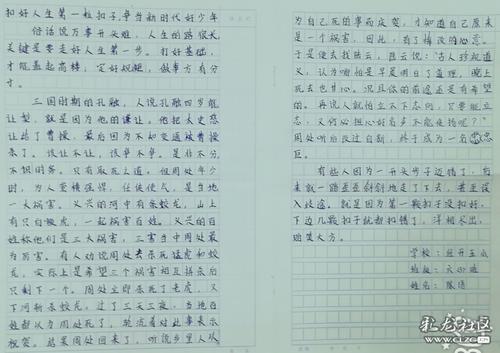 扣好人生第一粒扣子,争当新时代好少年
俗话说万事开头难,人生的路很长,
关键是要走好人生第一步。打好基础,
才能盖起高楼,定好规矩,做事方有分
寸。
三国时期的孔融,人说孔融四岁能
让梨,就是因为他的谦让。他把太史慈
让给了曹操,最后因为不知变通被曹操
杀了。该让不让,该争不争。是非不分,
不识时务。只有取死之道。但周处年少
时,为人蛮横强悍,任侠使气,是当地
一大祸害。义兴的河中有条蛟龙,山上
有只白额虎,一起祸害百姓。义兴的百
姓称他们是三大祸害,三害当中周处最
为厉害。有人劝说周处去杀死猛虎和蛟
龙,实际上是希望三个祸害相互拼杀后
只剩下一个。周处立即杀死了老虎,又
下河斩杀蛟龙。过了三天三夜,当地百
姓都认为周处死了,轮流着对此事表示
祝贺。结果周处回来了,听说乡里人以
为自己死的事而庆贺,才知道自己原来
是一个祸害,因此,有了悔改的心意。
于是便去找陆云,陆云说:“古人珍视道
义,认为哪怕是早晨明白了道理,晚上
死去也甘心。况且你的前途还是有希望
的。再说人就怕立不下志向,只要能立
志,又何必担心好名声不能传扬呢?”
周处听后改过自新,终于成为一名忠
臣。
有些人因为一开头步子迈错了,后
来就一路歪歪斜斜地走了下去,甚至误
入歧途。就是因为第一颗扣子没扣好,
下边几颗扣子就都扣错了,洋相尽出,
贻笑大方。
学校:
班级:六
姓名:陈
礼龙社区
WWW.CLZG.CN